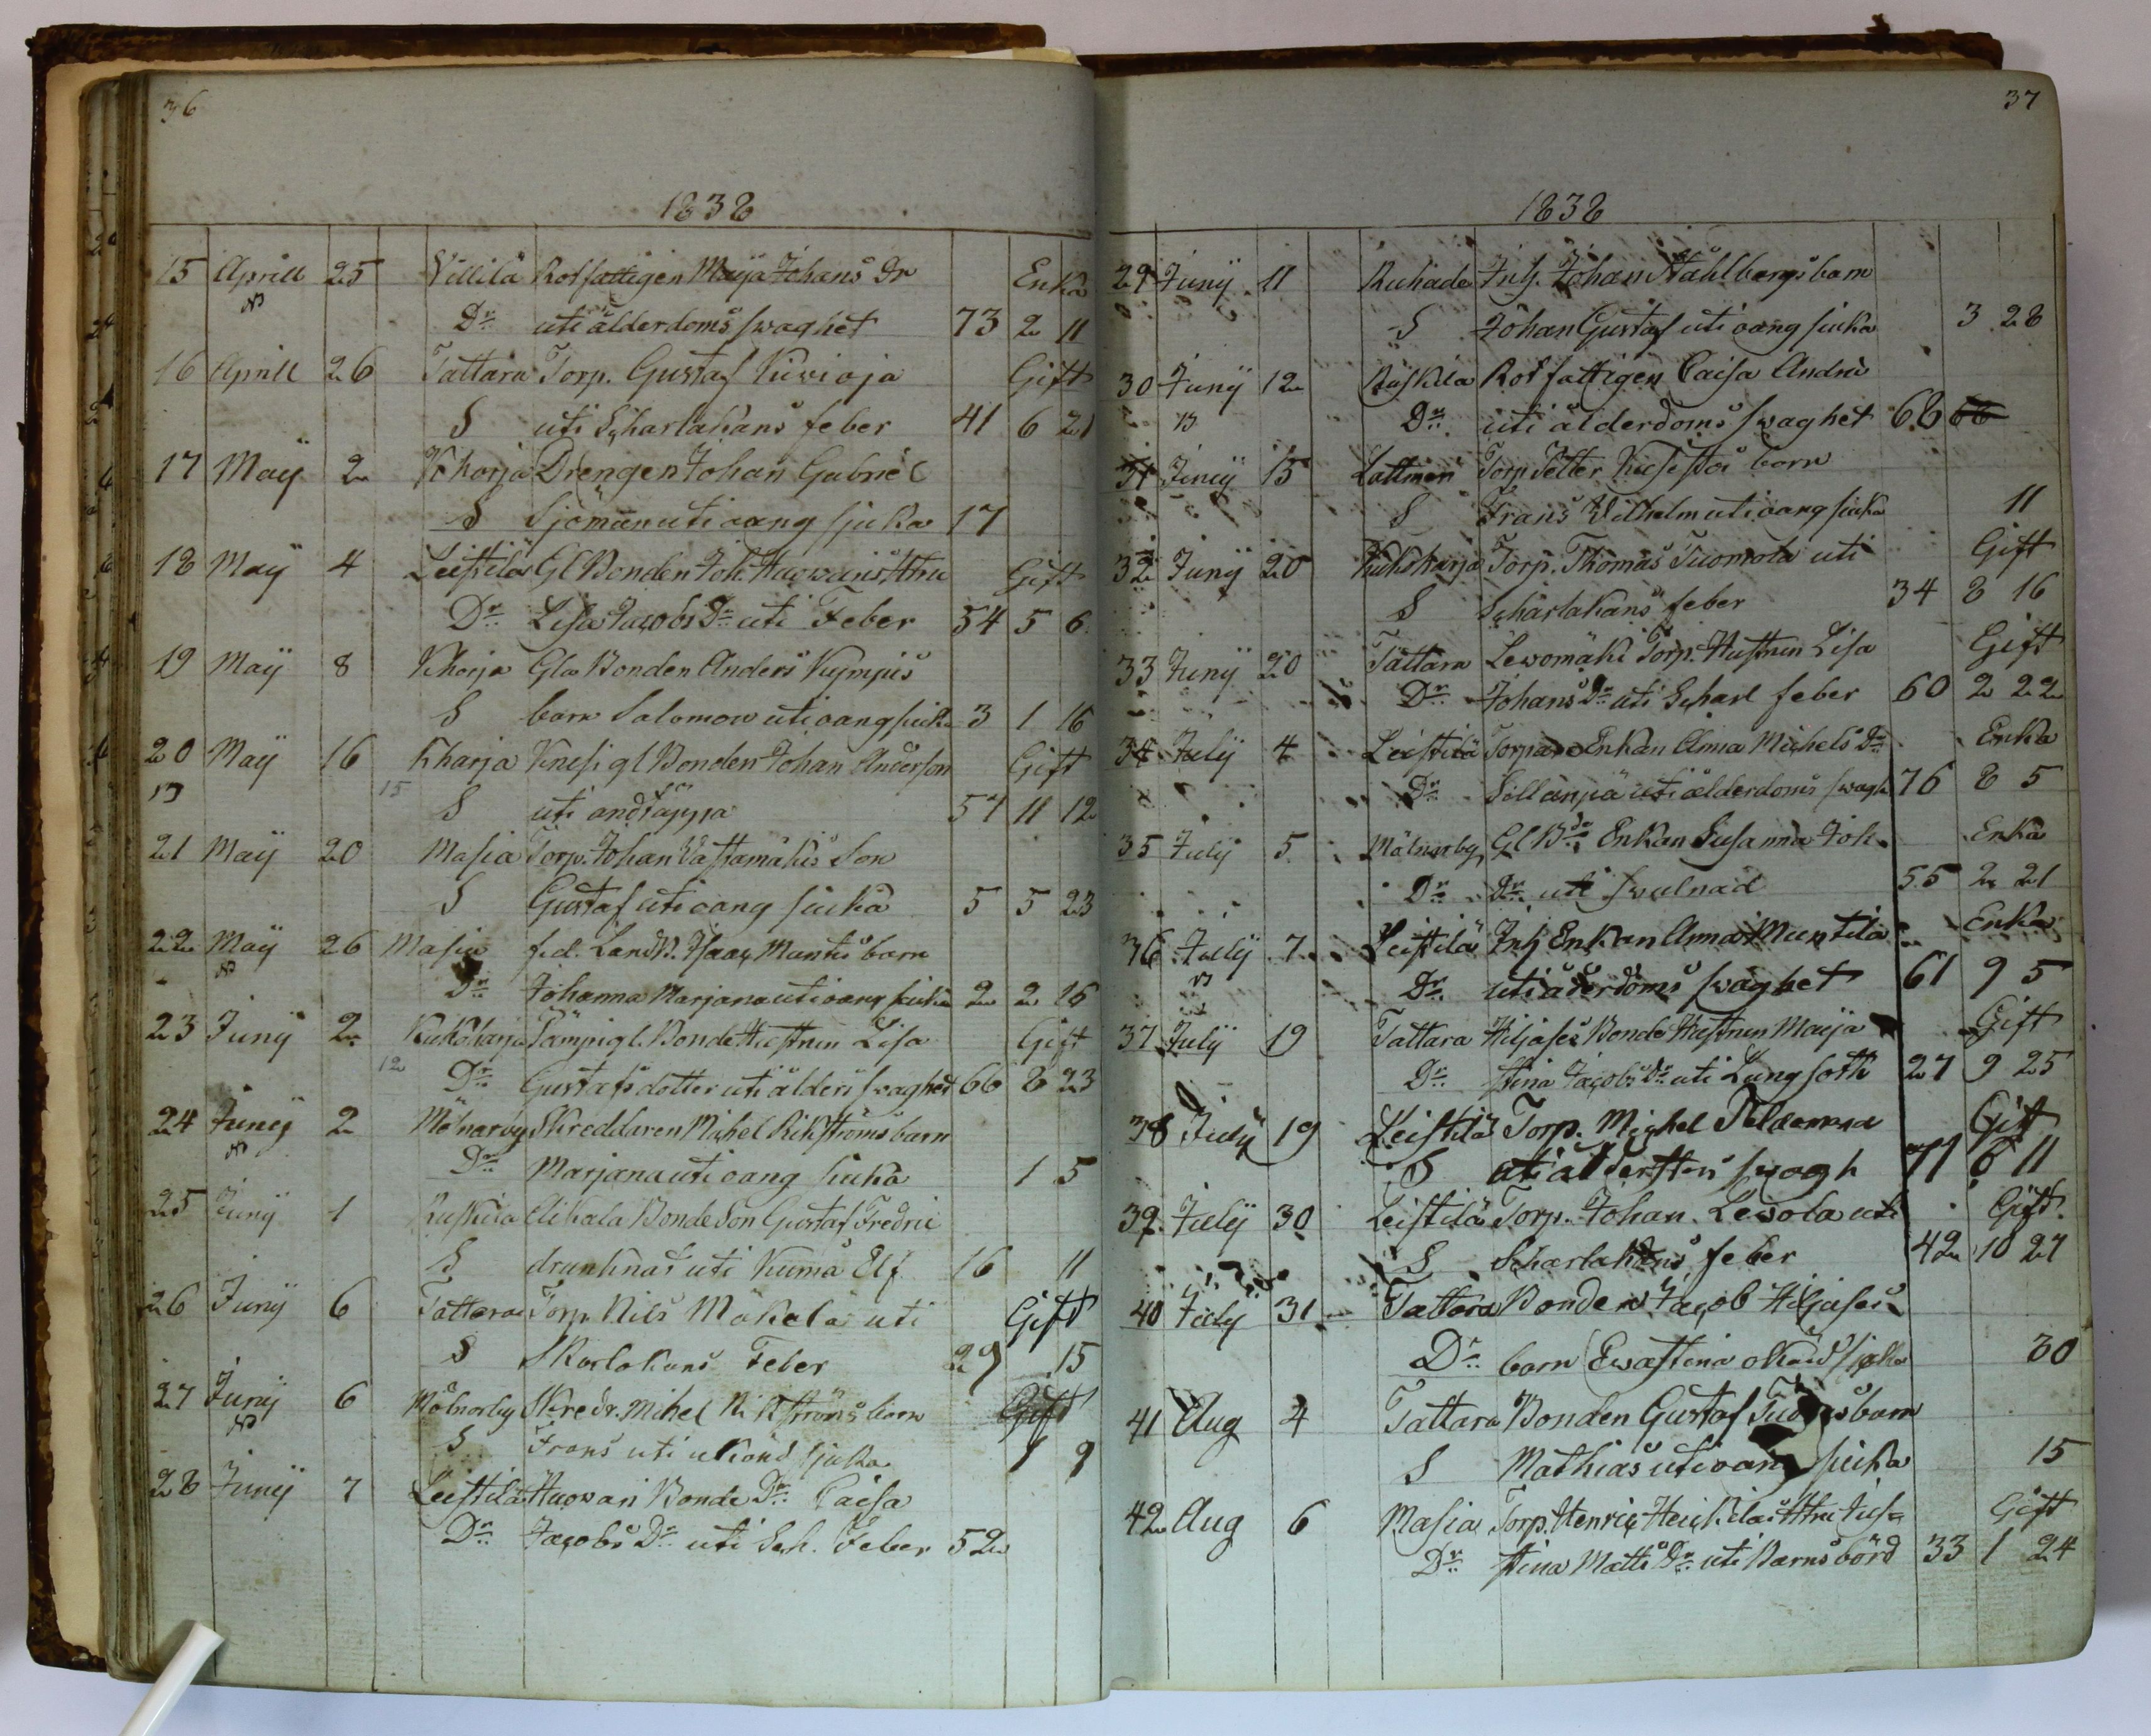 36
1838
15 Aprill 25 Villilä Rotfattigen Maija Johans Dr Enka
Dr uti ålderdoms swaghet 73 2 11
16 Aprill 26 Tattara Torp. Gustaf Kiwioja Gift
S uti Scharlakans feber 41 6 21
17 Maij 2 Kharja Drengen Johan Gabriel
S Sjöman uti oang sjuka 17
18 Maij 4 Leistilä Gl Bonden Joh. Hugwais Hru Gift
Dr Lisa Jacobs Dr uti Feber 54 5 6
19 Maij 8 Kharja Gla Bonden Anders Kympis
S barn Salomon uti oang siuka 3 1 16
20 Maij 16 Kharja gl Bonden Johan Anderson Gift
15 S uti andtäppa 57 11 12
21 Maij 20 Masia Torp. Johan Vastamäkis Son
S Gustaf uti oang siuka 5 5 23
22 Maij 26 Masia f.d. Landb. Isaac Mantis barn
Dr Johanna Marjana uti oang siuka 2 2 26
23 Junij 2 Kukoharja Pämpi gl. Bonde Hustrun Lisa Gift
12 Dr Gustafs dotter uti ålders swaghet 66 8 23
24 Junij 2 Mölnarby Skreddaren Michel Rikströms barn
Dr Marjana uti oang siuka 1 5
25 Junij 1 Ruskila Aikala Bonde Son Gustaf Fredric
S drunknat uti Kumå Elf 16 11
26 Junij 6 Tattara Torp Nils Mäkelä uti Gift
S Skarlakans Feber 29 15
27 Junij 6 Mölnarby Skredr. Mihel Rikströms barn
S Frans uti okänd sjuka 1 9
28 Junij 7 Leistilä Hugwari Bonde Dr Caisa
Dr Jacobs Dr uti Sch. Feber 52
37
1838
29 Junij 11 Inh. Johan Ståhlbergs barn
S Johan Gustaf uti oang siuka 3 28
30 Junij 12 Ruskila Rotfattigen Caisa Andrs
Dr uti ålderdoms swaghet 68
31 Junij 15 Lattmeri Torp Petter barn
S Frans Vilhelm uti oang siuka 11
32 Junij 20 Kukoharja Torp. Thomas Tuomola uti Gift
S Scharlakans feber 34 8 16
33 Junij 20 Tattara Lewomäki Torp. Hustrun Lisa Gift
Dr Johans Dr uti Scharl feber 60 2 22
34 Julij 4 Leistilä Torpare Enkan Anna Michels Dr Enka
Dr Sillanpä uti ålderdoms swagh 76 8 5
35 Julij 5 Mölnarby Gl Bde Enkan Susanna Joh. Enka
Dr Dr uti swulnad 55 2 21
36 Julij 7 Leistilä Inh Enkan Anna Muntila Enka
Dr uti åderdoms swaghet 61 9 5
37 Julij 19 Tattara Hiljases Bonde Hustrun Maija Gift
Dr Stina Jacobs Dr uti Lungsoth 27 9 25
38 Julij 19 Leistilä Torp. Michel Gift
S uti swagh 71 6 11
39 Julij 30 Leistilä Torp. Johan Lewola uti Gift
S Scharlakans feber 42 10 27
40 Julij 31 Tattara Bonden Jacob Hiljases
Dr barn Ewastina okänd sjuka 30
41 Aug 4 Tattara Bonden Gustaf barn
S Mathias uti oang siuka 15
42 Aug 6 Masia Torp. Henric Heickilas Hru Gift
Dr Stina Matts Dr uti Barnsbörd 33 1 24